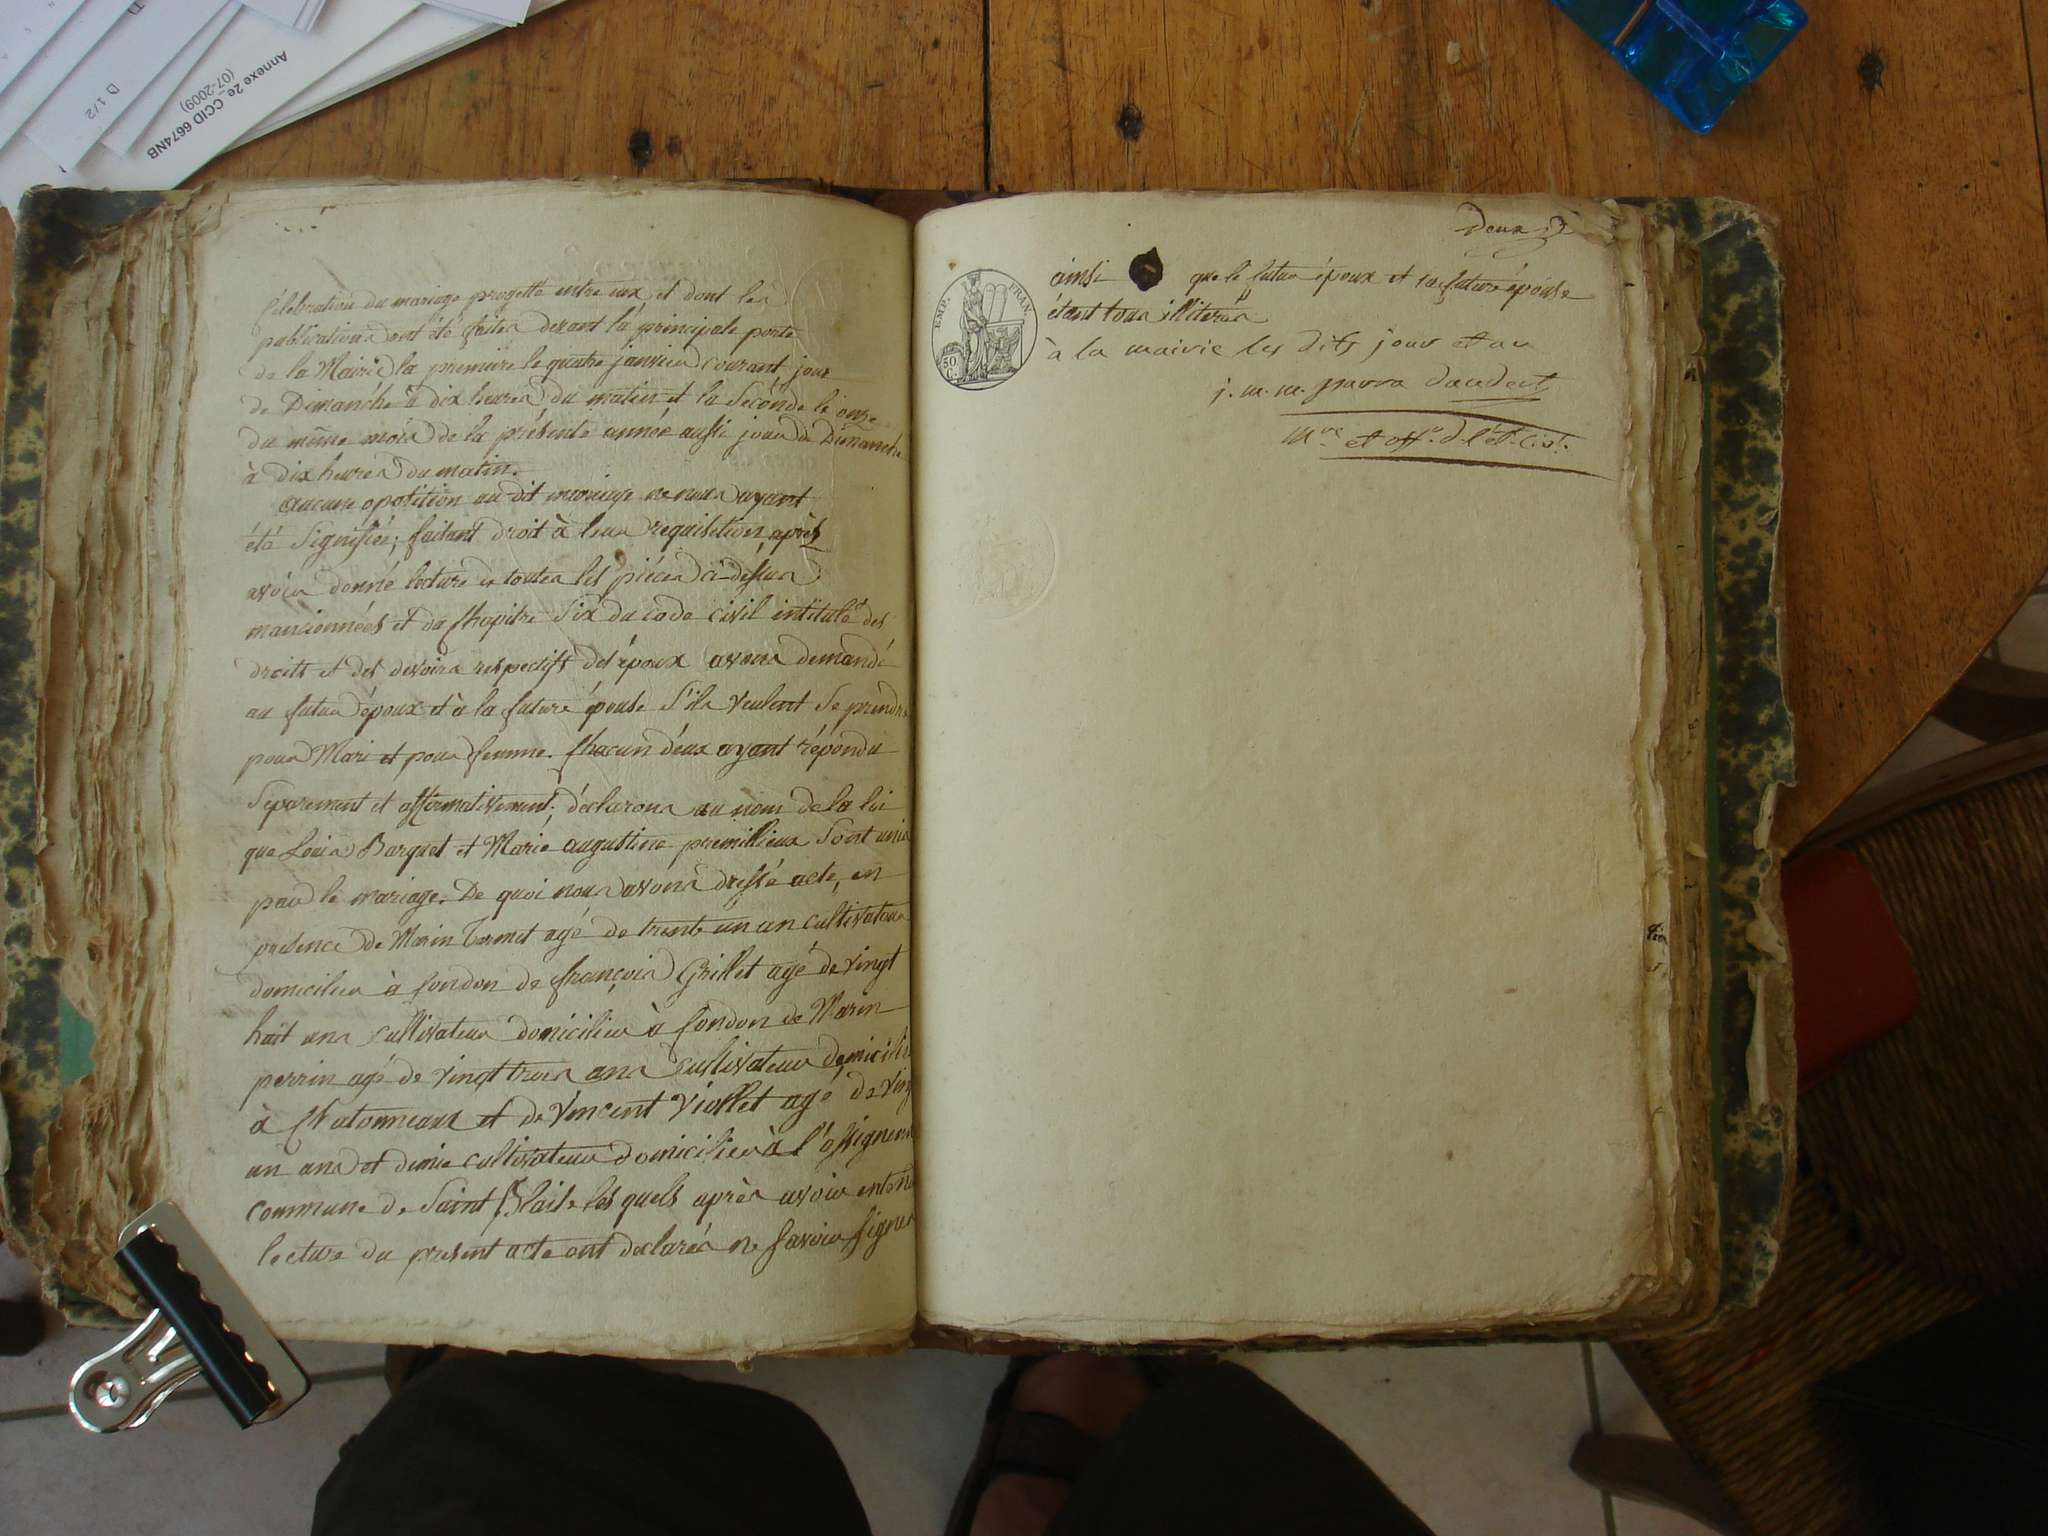 Annexe 2e_CCID 6674NB
(07-2009)
D 1/2
Célébration du mariage progetté entre eux et dont les
publications ont été faites devant la principale porte
de la Mairie la premiere le quatre janvier courant jour
de Dimanche à dix heures du matin et la Séconde le onze
du même mois de la présente année aussi jour de Dimanche
à dix heures du matin.
aucune opotition au dit mariage ne nous ayant
été Signifiée; faisant droit à leur requisition, après
avoir donné lecture de toutes les piéces ci-dessus
mancionnées et du Chapitre Six du code civil intitulé des
droits et des devoirs respectifs des époux avons demandé
au futur époux et à la future épouse S'ils veulent Se prendre
pour Mari et pour femme. Chacun d'eux ayant répondu
Séparement et affirmativement; déclarons au nom de la loi
que Louis Barquet et Marie augustine premillieux Sont unis
par le mariage. De quoi nous avons dressé acte, en
présence de Marin Tarmet agé de trente un an cultivateur
domicilier à Condon de françois Grillet agé de vingt
huit ans cultivateur domicilier à Condon de Marin
perrin agé de vingt trois ans cultivateur domicilié
à Chatonneaux et de Vincent Viollet agé de vingt
un ans et demie cultivateur domicilier à l'
commune de Saint Blaise les quels après avoir entendu
lecture du présent acte ont declarés ne Savoir Signer
Deux
EMP. FRAN.
50 C.
ainsi que le futur époux et la future épouse
étant tous illiterés
à la mairie les dits jour et an
j. m. m. Daudert
Mre et offr. d. l'ét. civl.